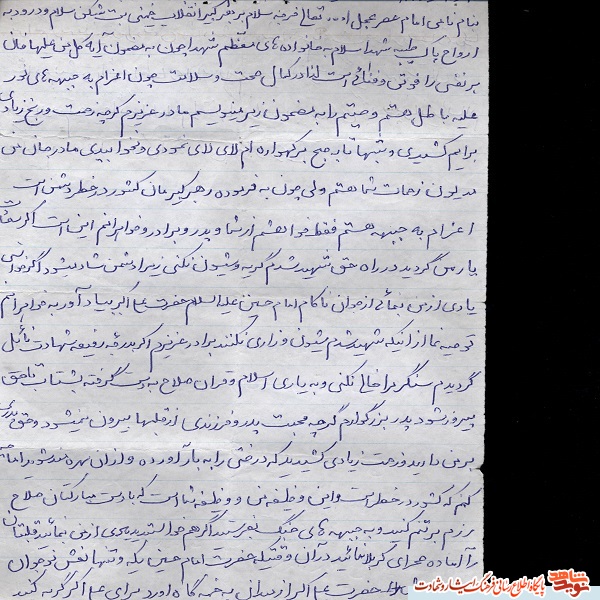 بنام نامی امام عصر عجل ا... تعالی فرجه سلام بر رهبر کبیر انقلاب خمینی بت شکن سلام و درود به
ارواح پاک طیبه شهدا سلام به خانواده های معظم شهدا چون به مضمون آیه کل من علیها فان
هر نفسی را فوتی و فنائی است لذا در کمال صحت و سلامت چون اعزام به جبهه های نور
علیه باطل هستم وصیتم را به مضمون زیر مینویسم مادر عزیزم گرچه زحمت و رنج زیادی
برایم کشیدی و شبها تا به صبح بر گهواره ام لای لای نمودی و نخوابیدی مادر جان من
مدیون زحمات شما هستم ولی چون به فرموده رهبر کبیرمان کشور در خطر دشمن است
اعزام به جبهه هستم فقط خواهشم از شما و پدر و برادر و خواهرانم این است اگر شهادت
یار من گردید در راه حق شهید شدم گریه و شیون نکنی زیرا دشمن شاد میشود اگر خواستی
یادی از من بنمائی از جوان ناکام امام حسین علیه السلام حضرت علی اکبر بیاد آور به خواهرانم
توصیه نما از اینکه شهید شدم شیون و زاری نکنند برادر عزیزم اگر بدرقه رفیعه شهادت نائل
گردیدم سنگر مرا خالی نکنی و به یاری اسلام و قرآن سلاح به دست گرفته بشتاب تا حق
پیروز شود پدر بزرگوارم گرچه محبت پدر و فرزندی از قلبها بیرون نمیشود و حق پدری
بر من دارید و زحمت زیادی کشیدید که درختی را به بار آورده و از آن بهره مند شوید اما چه
کنم که کشور در خطر است و این وظیفه من و وظیفه شما است که با دست مبارکتان سلاح
رزم بر تنم کنید و به جبهه های جنگ بفرستید اگر هم خواستید یادی از من بمائید قلبتان
را آماده صحرای کربلا نمائید در آن وقتیکه حضرت امام حسین یکه و تنها نعش نوجوان
حضرت علی اکبر از میدان به خیمه گاه آورد برای علی اکبر گریه کنید
نوید شاهد
پایگاه اطلاع رسانی فرهنگ ایثار و شهادت